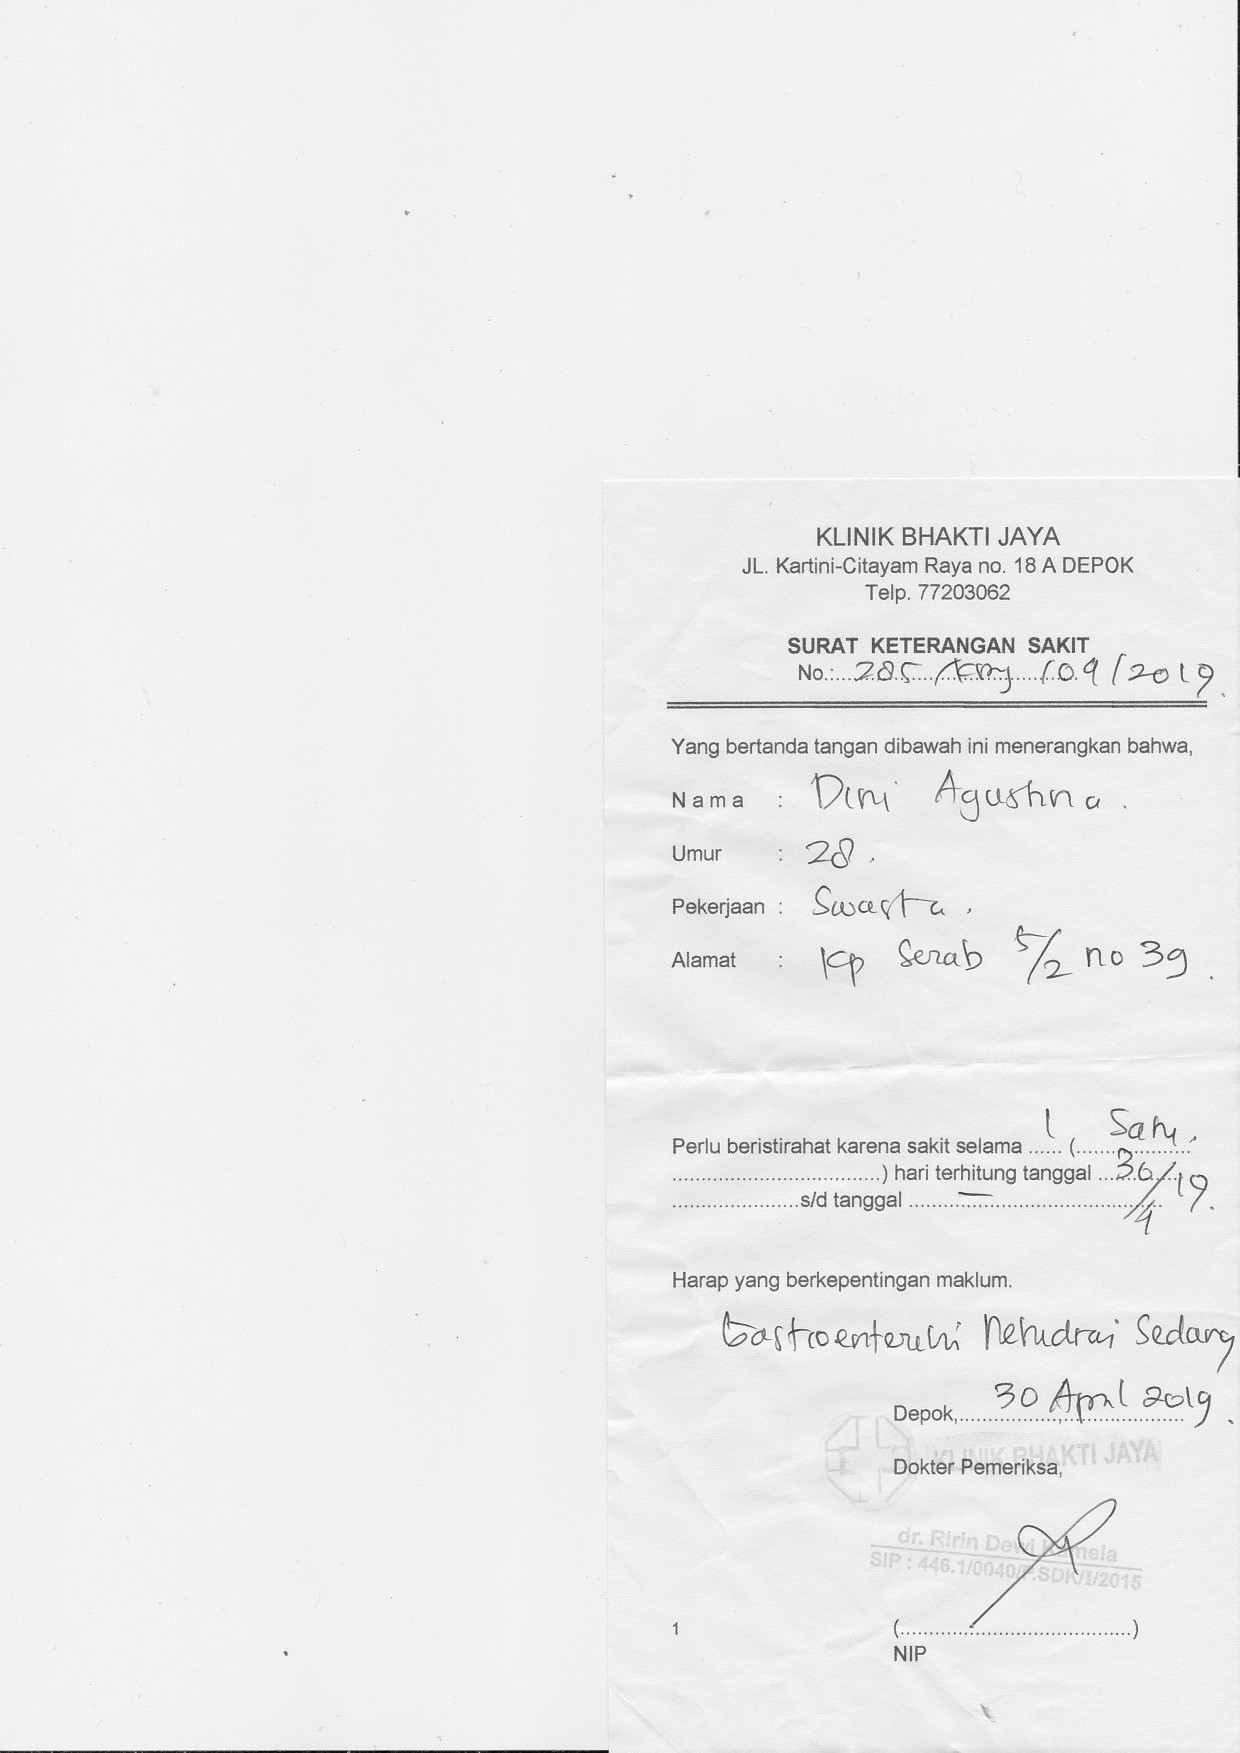 KLINIK BHAKTI JAYA
JL. Kartini-Citayam Raya no. 18 A DEPOK
Telp. 77203062
SURAT KETERANGAN SAKIT
No.:....285../......../.09/2019.
Yang bertanda tangan dibawah ini menerangkan bahwa,
Nama : Dini Agustina.
Umur : 28.
Pekerjaan : Swasta.
Alamat : Kp Serab 5/2 no 39.
Perlu beristirahat karena sakit selama 1 ( Satu.
) hari terhitung tanggal 30/4/19.
s/d tanggal —
Harap yang berkepentingan maklum.
Gastroenteritis Sedang
Depok, 30 April 2019.
KLINIK BHAKTI JAYA
Dokter Pemeriksa,
dr. Ririn Dewi
SIP : 446.1/0040/P.SDK/I/2015
1 (......................................)
NIP